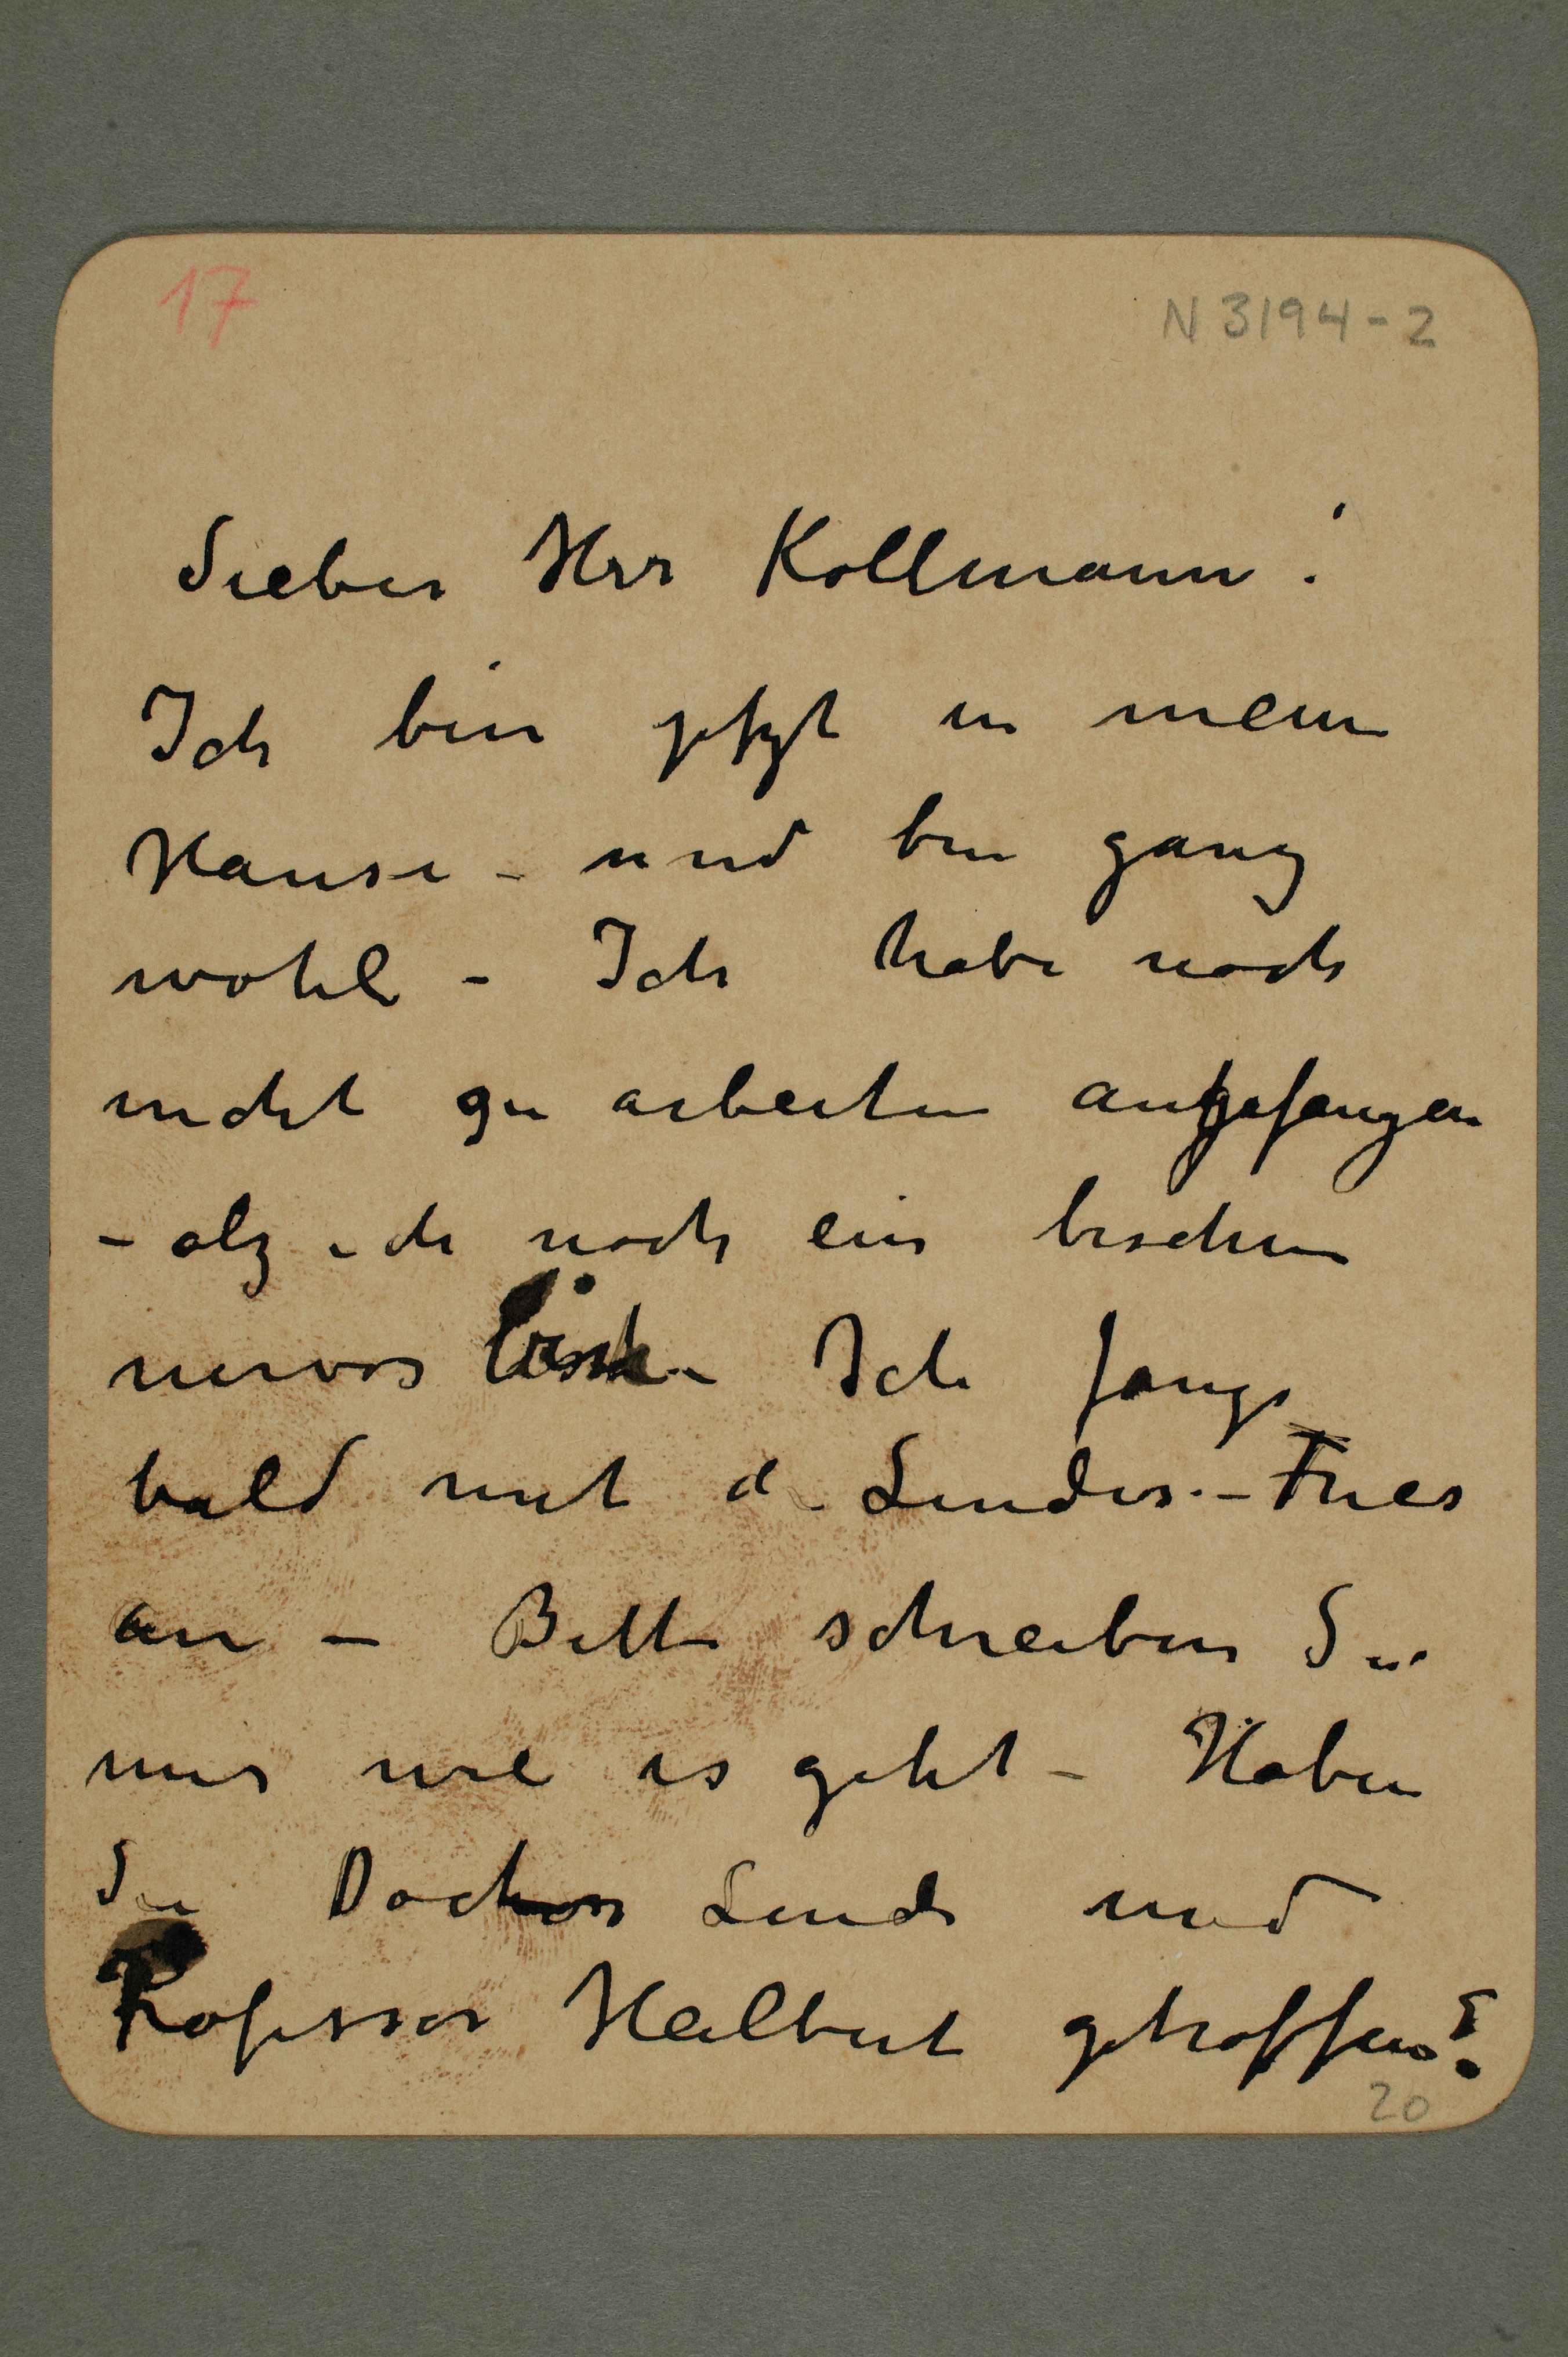 17
N 3194-2
Lieber Herr Kollmann!
Ich bin jetzt in mein
Hause – und bin ganz
wohl – Ich habe noch
nicht zu arbeiten angefangen
– alz ich noch ein bischen
nervos – Ich fange
bald mit d Lindes – Fries
an – Bitte schreiben Sie
mir wie es geht – Haben
Sie Doctor Linde und
Professor Heilbut getroffen?
20